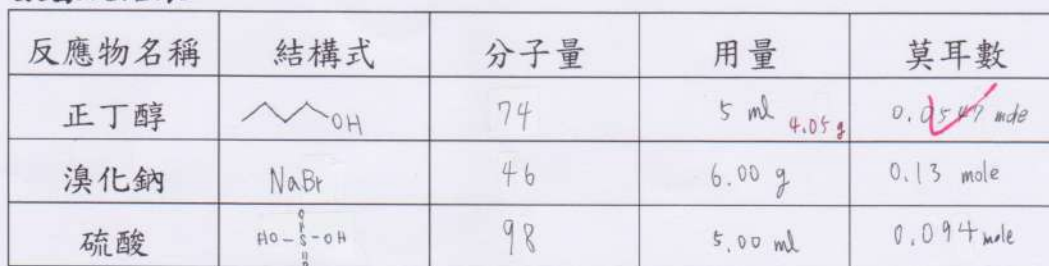 反應物名稱 結構式 分子量 用量 莫耳數
正丁醇 OH 74 5 ml 4.05 g 0.0547 mole
溴化鈉 NaBr 46 6.00 g 0.13 mole
硫酸 HO-S-OH 98 5.00 ml 0.094 mole